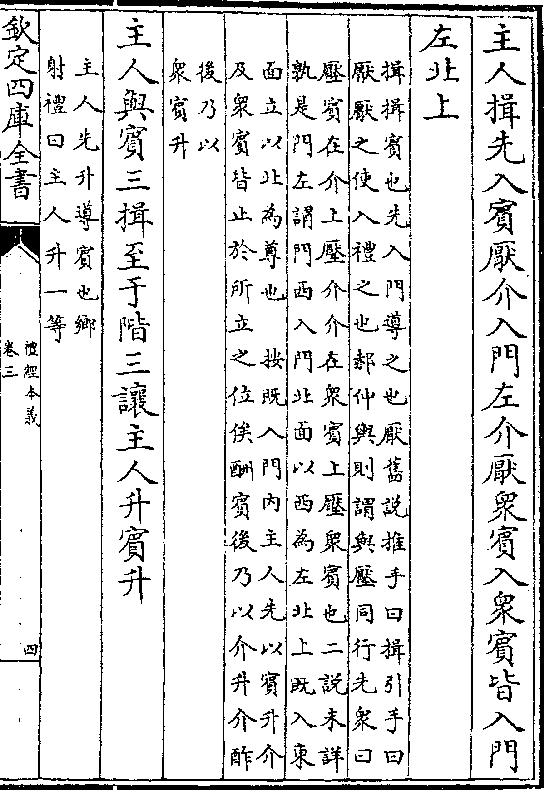 主人揖先入賓厭介入門左介厭衆賓入衆賓皆入門
左北上
揖揖賓也先入門導之也厭舊說推手曰揖引手曰
厭厭之使入禮之也郝仲輿則謂與壓同行先衆曰
壓賓在介上壓介介在衆賓上壓衆賓也二說未詳
孰是門左謂門西入門北面以西為左北上既入東
面立以北為尊也　按既入門内主人先以賓升介
及衆賓皆止於所立之位俟酬賓後乃以介升介酢
後乃以
衆賓升
主人與賓三揖至于階三讓主人升賓升
主人先升導賓也鄉
射禮曰主人升一等
欽定四庫全書
禮經本義
卷三
四